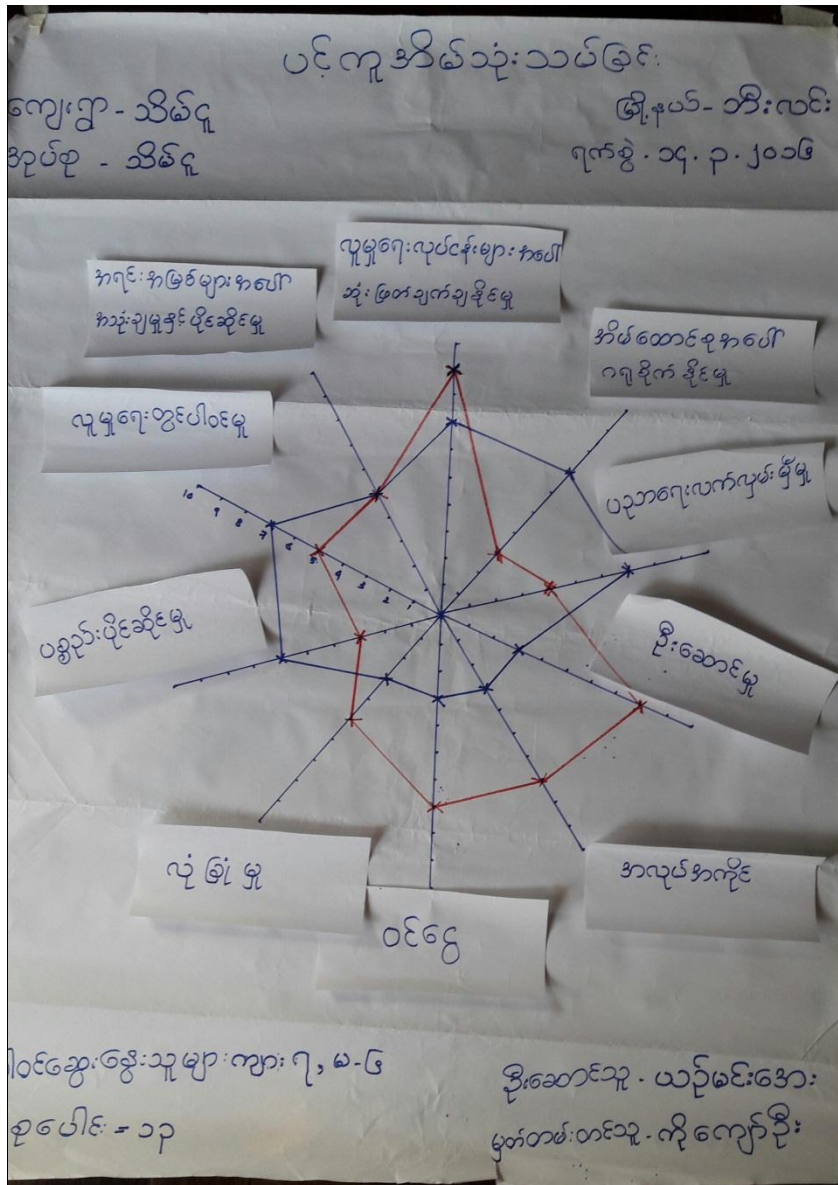 ပင့်ကူအိမ်သုံးသပ်ခြင်း
ကျေးရွာ - သိမ်ငူ
မြို့နယ် - ဘီးလင်း
အုပ်စု - သိမ်ငူ
ရက်စွဲ - ၁၄.၃.၂၀၁၆
လူမှုရေးလုပ်ငန်းများအပေါ်
ဆုံးဖြတ်ချက်ချနိုင်မှု
အရင်းအမြစ်များအပေါ်
အသုံးချမှုနှင့်ပိုင်ဆိုင်မှု
အိမ်ထောင်စုအပေါ်
ဂရုစိုက်နိုင်မှု
လူမှုရေးတွင်ပါဝင်မှု
ပညာရေးလက်လှမ်းမှီမှု
10
9
8
7
6
5
4
3
2
1
ပစ္စည်းပိုင်ဆိုင်မှု
ဦးဆောင်မှု
လုံခြုံမှု
အလုပ်အကိုင်
ဝင်ငွေ
ပါဝင်ဆွေးနွေးသူများကျား ၇, မ-၆
စုပေါင်း = ၁၃
ဦးဆောင်သူ - ယဉ်မင်းအေး
မှတ်တမ်းတင်သူ - ကိုကျော်ဦး